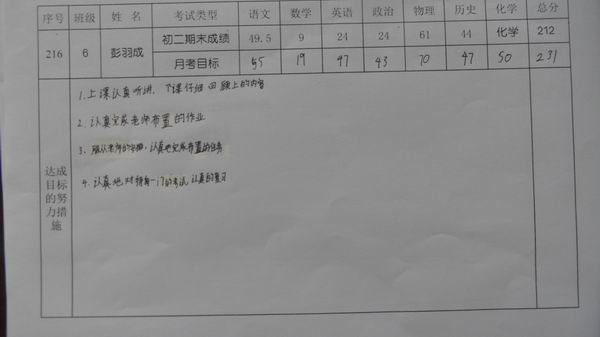 序号 班级 姓 名 考试类型 语文 数学 英语 政治 物理 历史 化学 总分
216 6 彭羽成 初二期末成绩 49.5 9 24 24 61 44 化学 212
月考目标 55 19 47 43 70 47 50 231
达成目标的努力措施
1.上课认真听讲,下课仔细回顾上的内容
2.认真完成老师布置的作业
3.服从老师的安排,认真地完成布置的任务
4.认真地对待每一门的考试,认真的复习